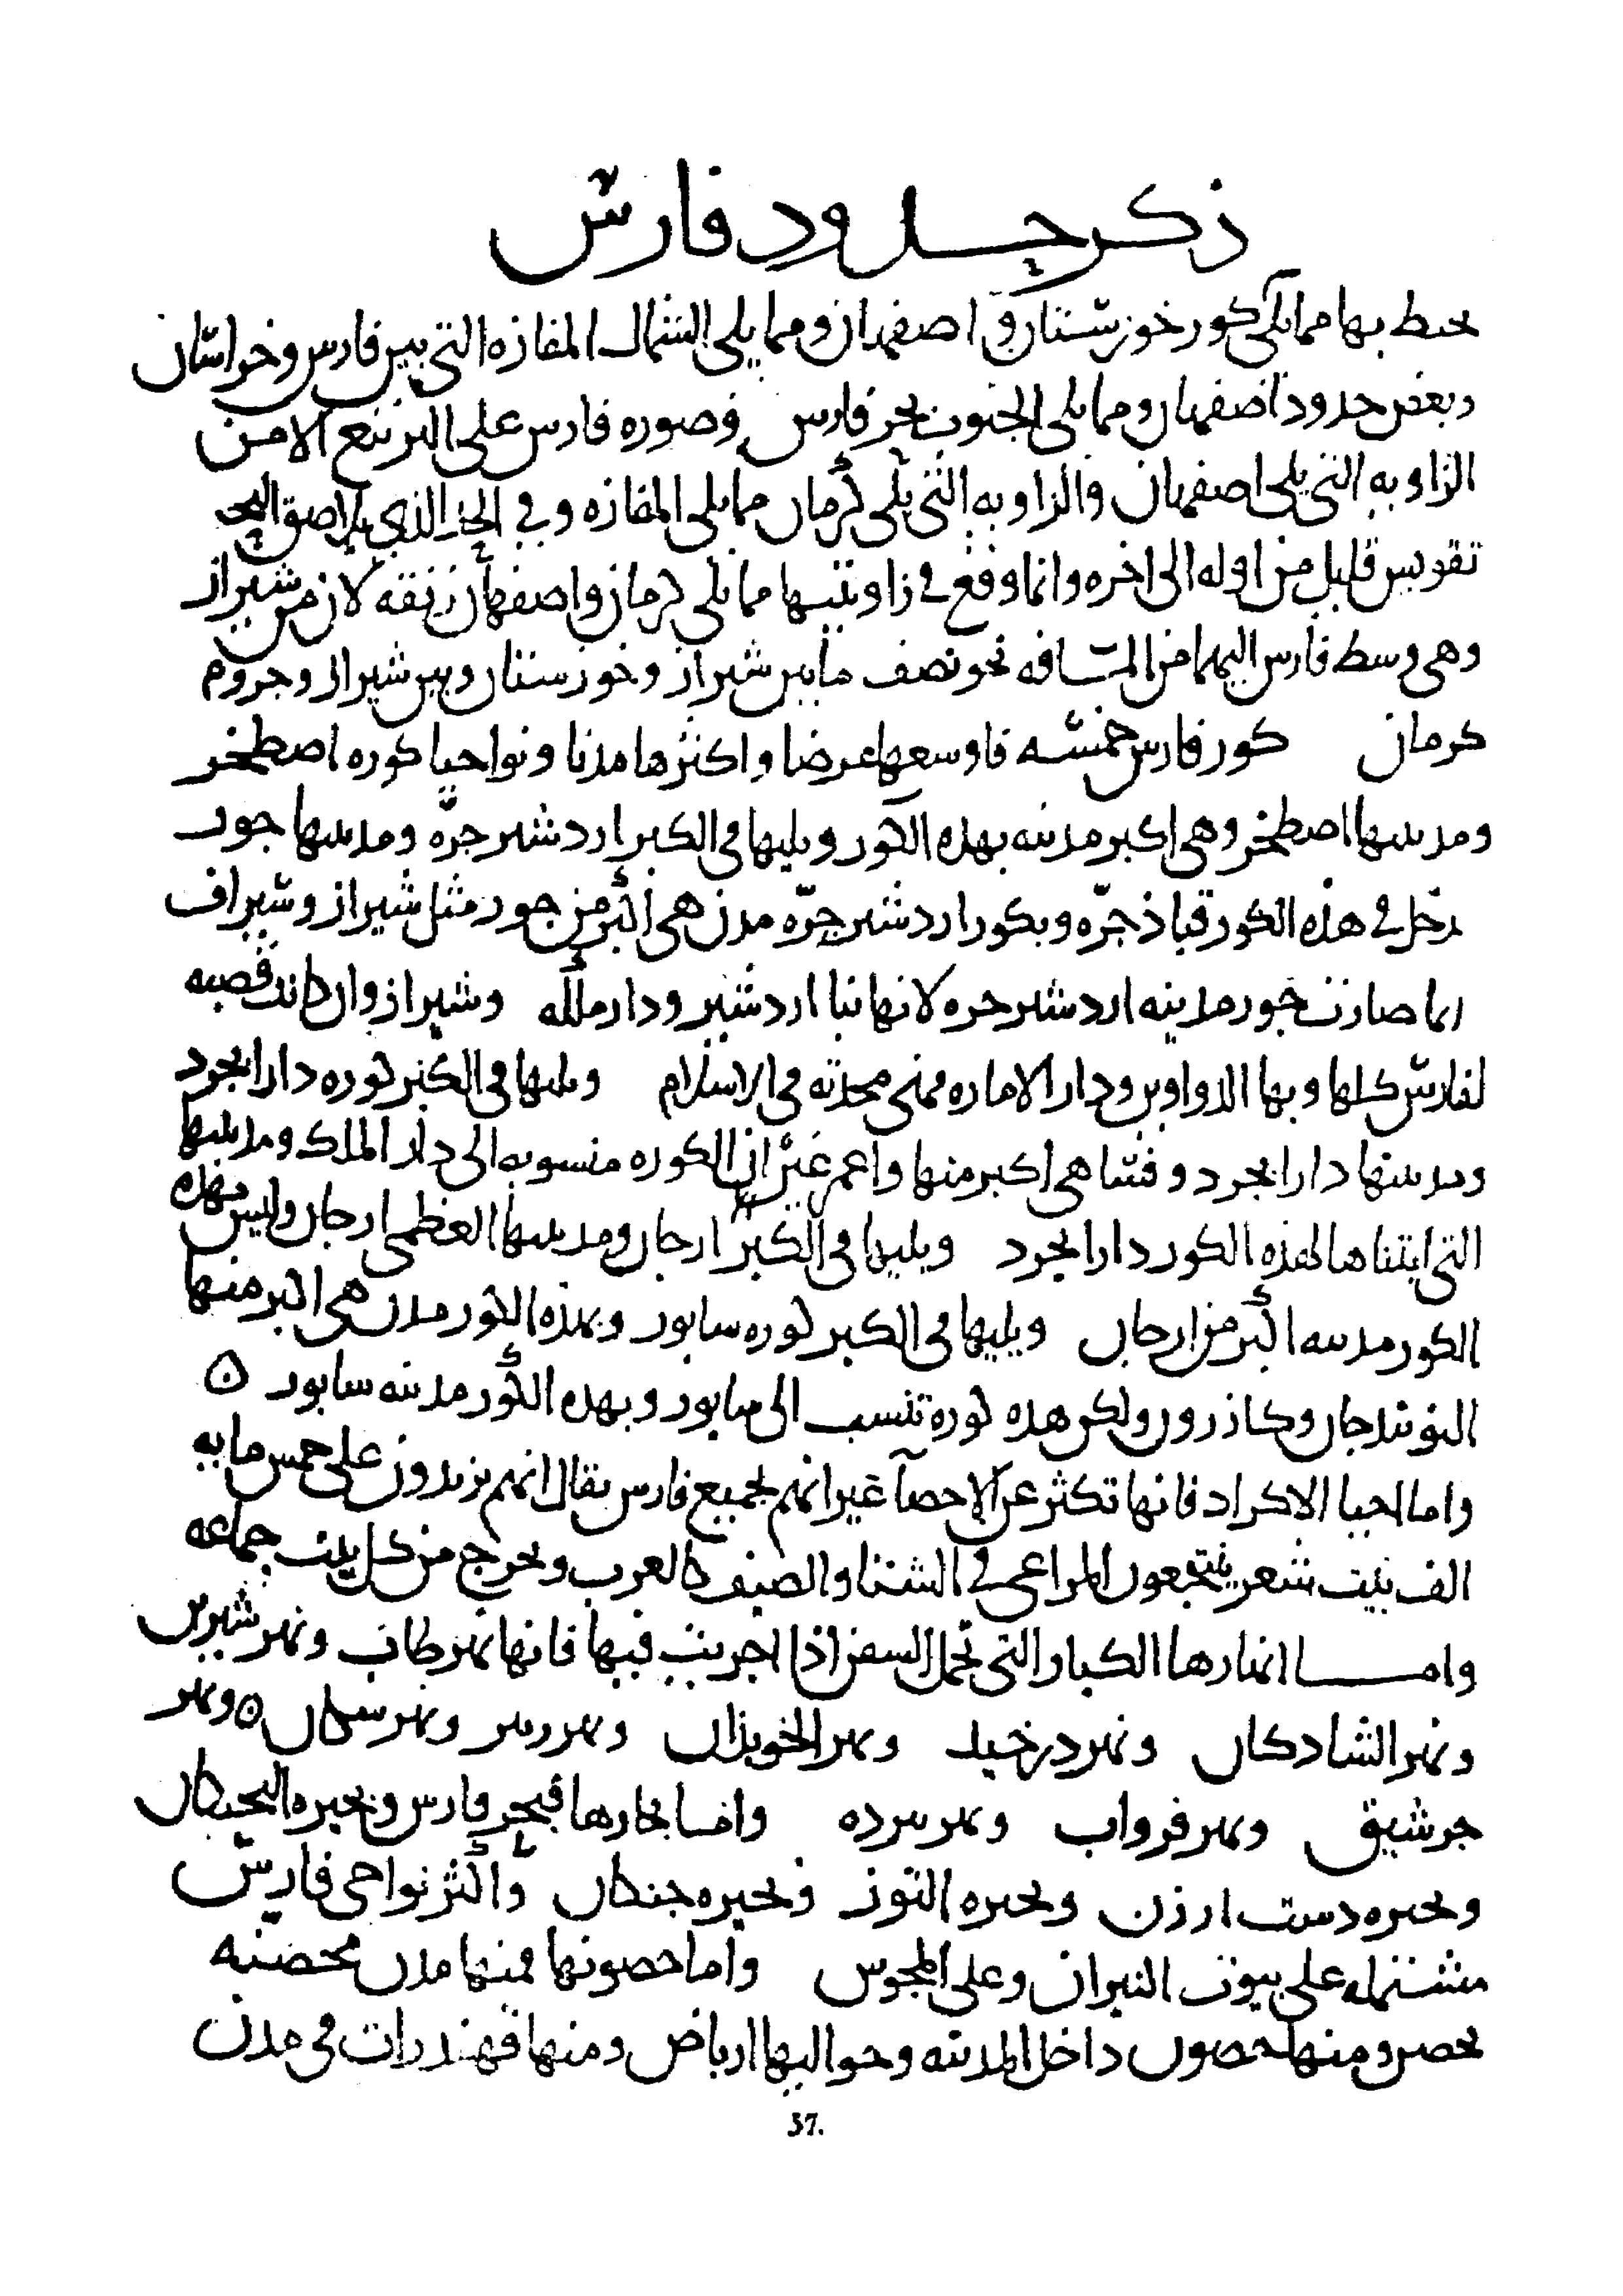 ذكر حدود فارس
يحيط بها مما يلي كور خوزستان و اصفهان ومما يلي الشمال المفازه التي بين فارس وخراسان
وبعض حدود اصفهان ومما يلي الجنوب بحر فارس وصوره فارس على التربيع الا من
الزاويه التي يلى اصفهان والزاويه التي يلى كرمان مما يلى المفازه وفي الحد الذي يلاصق البحر
تقويس قليل من اوله الى اخره وانما وقع في زاويتيها مما يلي كرمان واصفهان زنقه لان من شيراز
وهى وسط فارس اليهما من المسافه نحو نصف ما بين شيراز وخوزستان وبين شيراز وجروم
كرمان كور فارس خمسه فاوسعها عرضا واكثرها مدنا ونواحيا كوره اصطخر
ومدينتها اصطخر وهى اكبر مدينه بهذه الكور ويليها في الكبر اردشير خره ومدينتها جور
يدخل في هذه الكور قباذ خره وبكور اردشير خره مدن هي اكبر من جور مثل شيراز وسيراف
انما صارت جور مدينه اردشير خره لانها بنا اردشير ودار ملكه وشيراز وان كانت قصبه
لفارس كلها وبها الدواوين ودار الاماره فهى محدثه في الاسلام ويليها في الكبر كوره دارابجرد
ومدينتها دارابجرد وفسا هي اكبر منها واعمر غير ان الكوره منسوبه الى دار الملك ومدينتها
التي ابتناها لهذه الكور دارابجرد ويليها في الكبر ارجان ومدينتها العظمى ارجان وليس بهذه
الكور مدينه اكبر من ارجان ويليها في الكبر كوره سابور وبهذه الكور مدن هي اكبر منها
النوبندجان وكازرون ولكن هذه كوره تنسب الى سابور وبهذه الكور مدينه سابور ه
واما احيا الاكراد فانها تكثر عن الاحصآ غير انهم بجميع فارس يقال انهم يزيدون على خمس مايه
الف بيت شعر ينتجعون المراعي في الشتا والصيف كالعرب ويخرج من كل بيت جماعه
واما انهارها الكبار التي تحمل السفن اذا اجريت فيها فانها نهر طاب ونهر شيرين
ونهر الشاذكان ونهر درخيد ونهر الخوبذان ونهر رتين ونهر سكان ه ونهر
جرشيق ونهر فرواب ونهر تيرده واما بحارها فبحر فارس وبحيره البختكان
وبحيره دست ارزن وبحيره التوز وبحيره جنكان واكثر نواحي فارس
مشتمله على بيوت النيران وعلى المجوس واما حصونها فمنها مدن محصنه
بحصن ومنها حصون داخل المدينه وحواليها ارباض ومنها قهندرات في مدن
37.